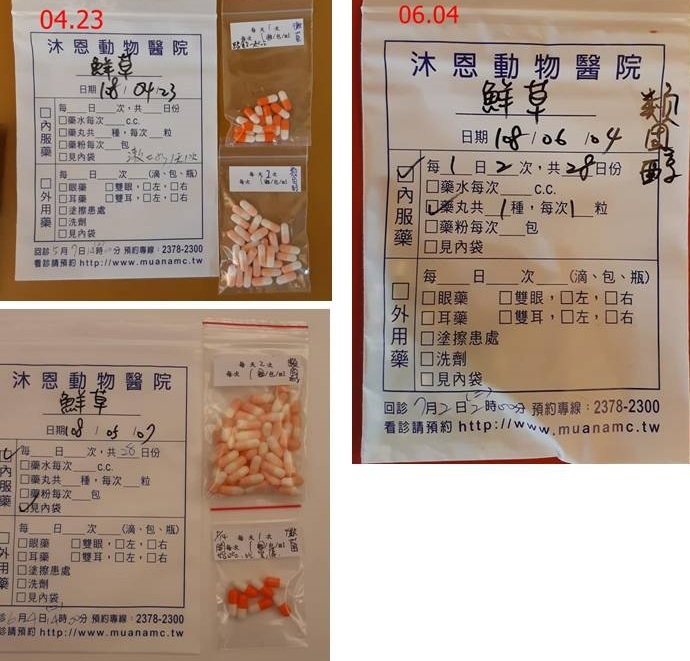 04.23
沐恩動物醫院
鮮草
日期 108/04/23
內服藥
每___日___次，共___日份
藥水每次___c.c.
藥丸共___種，每次___粒
藥粉每次___包
見內袋
外用藥
每___日___次___(滴、包、瓶)
眼藥 雙眼，左，右
耳藥 雙耳，左，右
塗擦患處
洗劑
見內袋
回診5月7日 時 分 預約專線：2378-2300
看診請預約 http://www.muanamc.tw
每天1次
每天2次
06.04
沐恩動物醫院
鮮草
類固醇
日期 108/06/04
內服藥
每1日2次，共28日份
藥水每次___c.c.
藥丸共1種，每次1粒
藥粉每次___包
見內袋
外用藥
每___日___次___(滴、包、瓶)
眼藥 雙眼，左，右
耳藥 雙耳，左，右
塗擦患處
洗劑
見內袋
回診7月2日2時 分 預約專線：2378-2300
看診請預約 http://www.muanamc.tw
沐恩動物醫院
鮮草
日期108/05/07
內服藥
每___日___次，共28日份
藥水每次___c.c.
藥丸共___種，每次___粒
藥粉每次___包
見內袋
外用藥
每___日___次___(滴、包、瓶)
眼藥 雙眼，左，右
耳藥 雙耳，左，右
塗擦患處
洗劑
見內袋
月4日 時 分 預約專線：2378-2300
診請預約 http://www.muanamc.tw
每天2次
每天1次